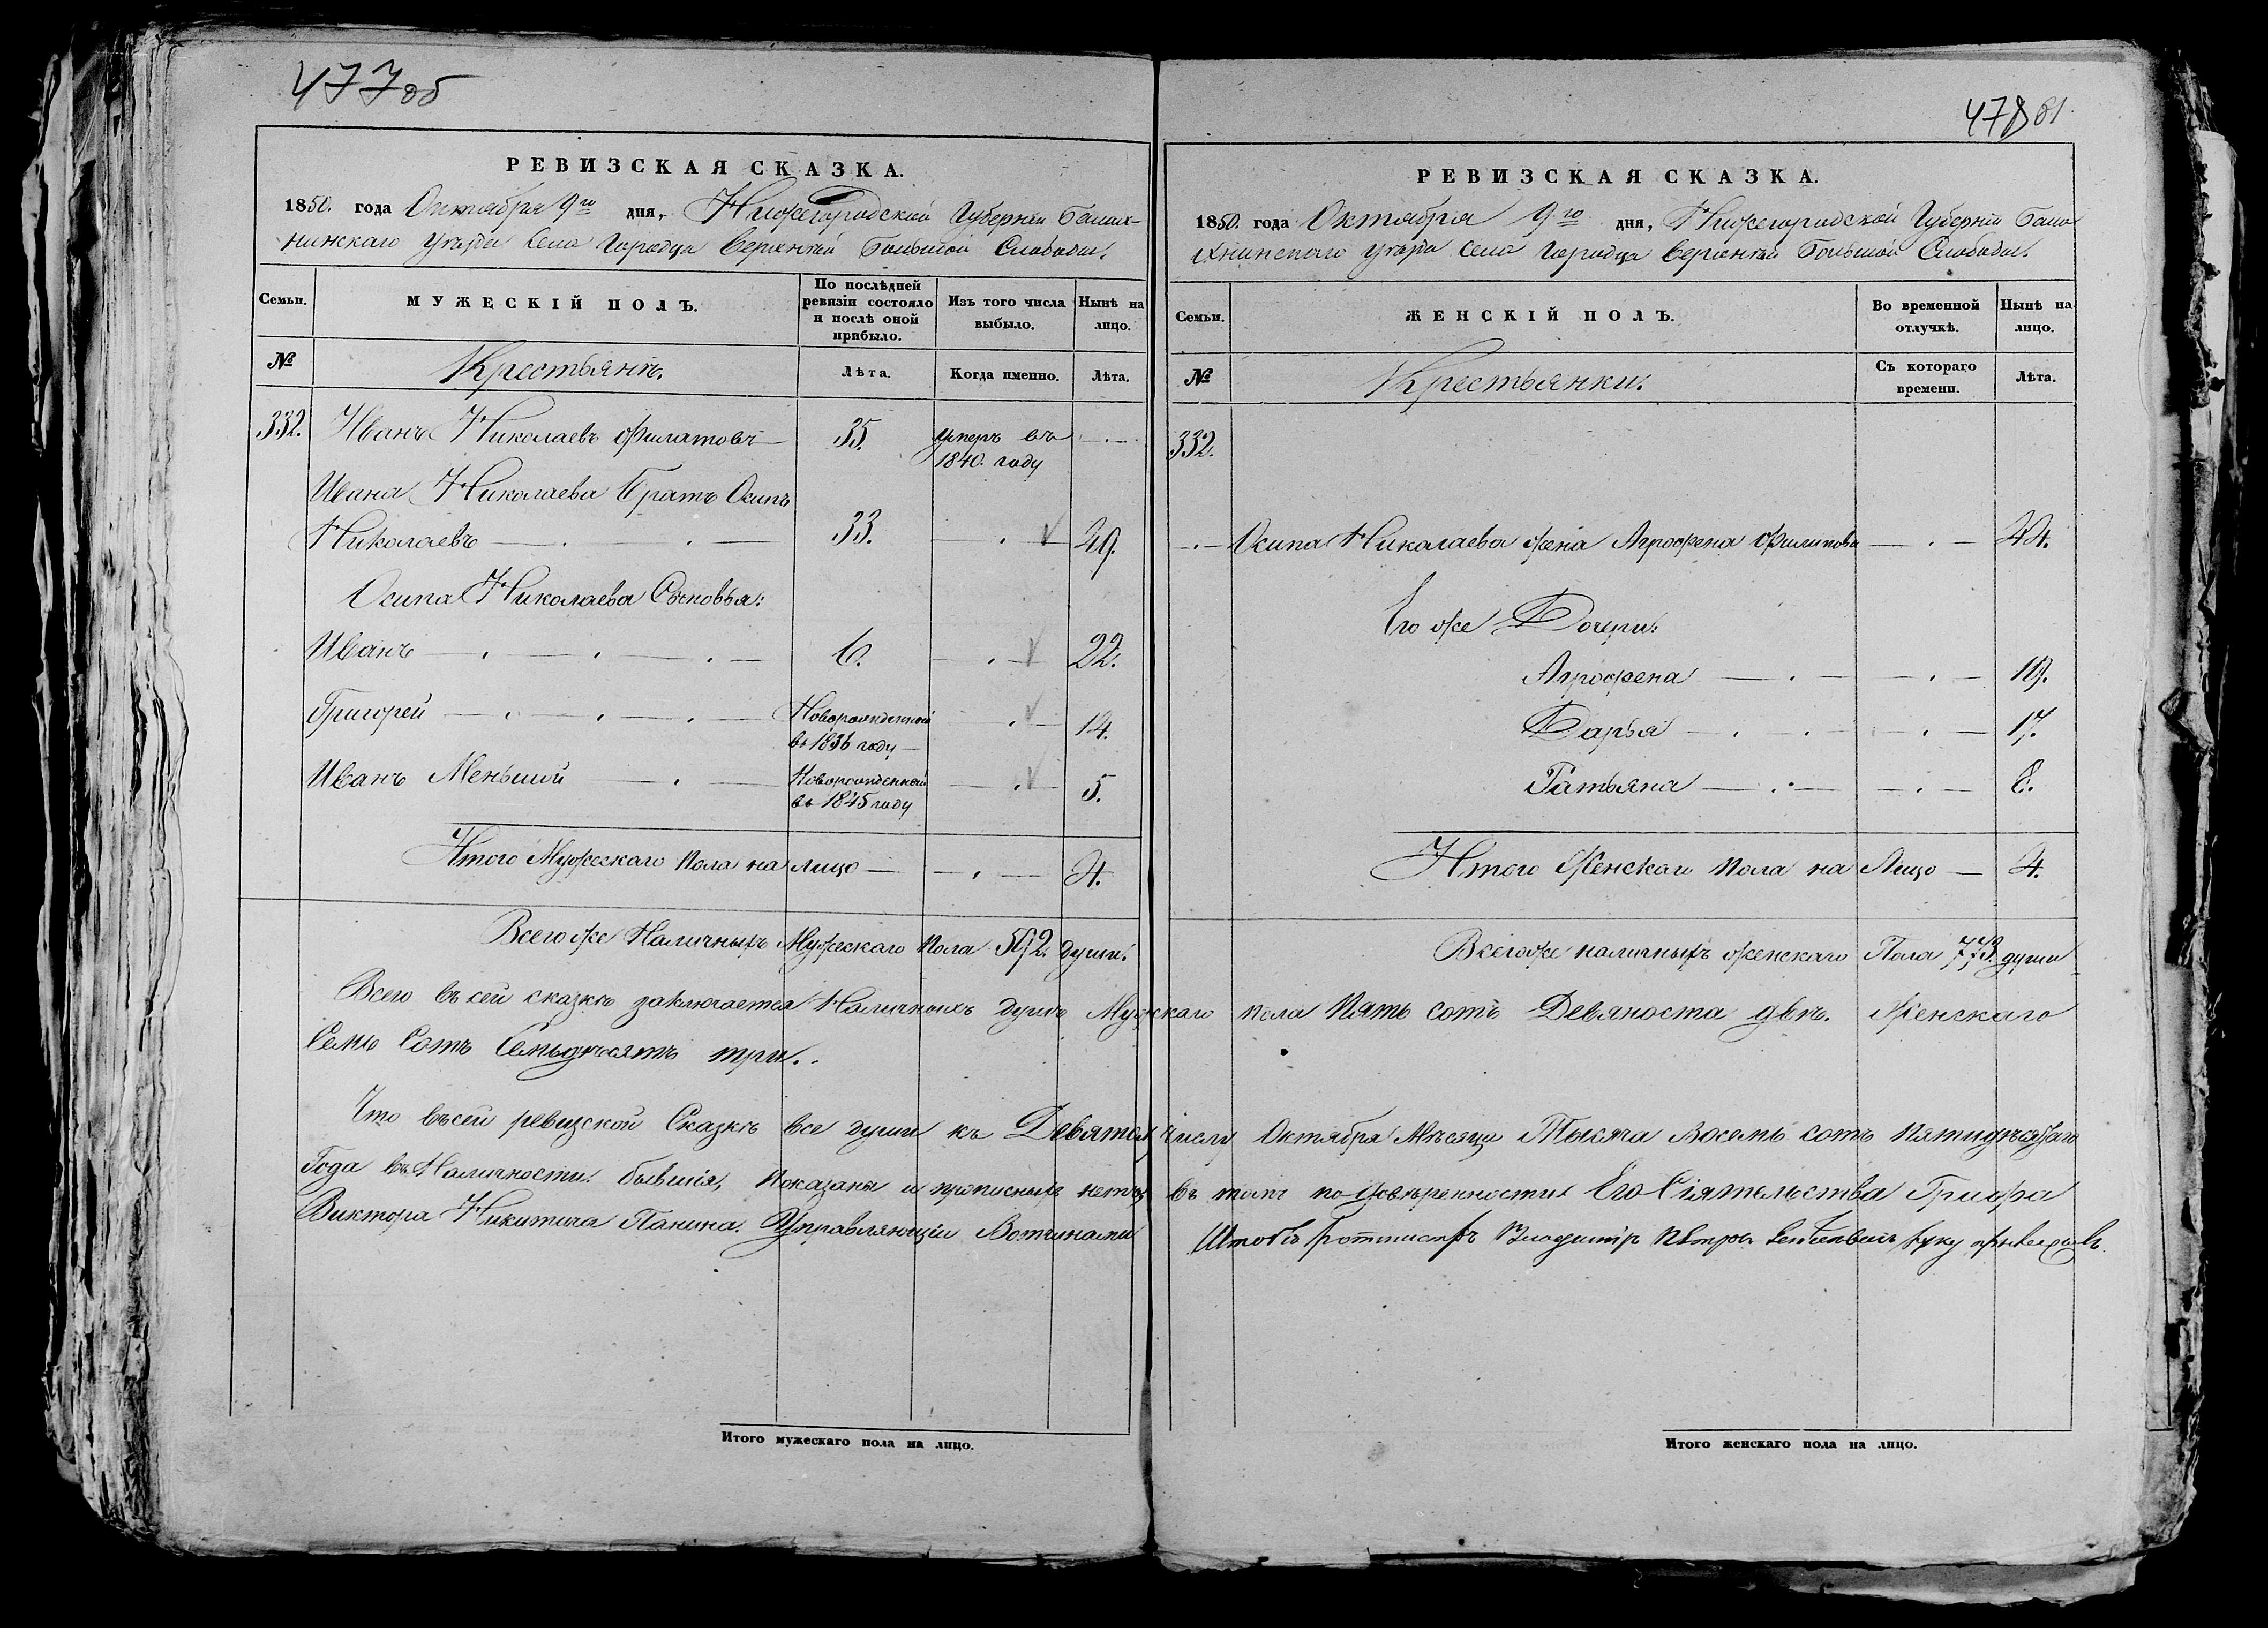 477об
РЕВИЗСКАЯ СКАЗКА.
1850. года Октября 9го дня, Нижегородской Губернiи Балах-
нинскаго уѣзда Села Городца Верхней Большой Слободы.
Семьи.
МУЖЕСКIЙ ПОЛЪ.
По послѣдней ревизiи состояло и послѣ оной прибыло.
Изъ того числа выбыло.
Нынѣ на лицо.
№
Крестьянѣ.
Лѣта.
Когда именно.
Лѣта.
332. Иванъ Николаевъ Филатовъ 35. умеръ въ
1840. году
Ивана Николаева братъ Осипъ
Николаевъ 33. 49.
Осипа Николаева Сыновья:
Иванъ 6. 22.
Григорей Новорожденный
въ 1836 году 14.
Иванъ Меньшой Новорожденный
въ 1845 году 5.
Итого Мужескаго пола на лицо 4.
Всего же Наличныхъ Мужескаго пола 592. души.
478 61
РЕВИЗСКАЯ СКАЗКА.
1850. года Октября 9го дня, Нижегородской Губернiи Бала
хнинскаго уѣзда Села Городца Верхней Большой Слободы.
Семьи.
ЖЕНСКIЙ ПОЛЪ.
Во временной отлучкѣ.
Нынѣ на лицо.
№
Крестьянки.
Съ котораго времени.
Лѣта.
332.
Осипа Николаева жена Агрофена Филипова 44.
Его же Дочери:
Агрофена 19.
Дарья 17.
Татьяна 8.
Итого Женскаго пола на Лицо 4.
Всегоже наличныхъ женскаго Пола 773. души
Всего въ сей сказкѣ заключается Наличныхъ душъ Мужскаго пола Пять сотъ Девяноста двѣ. Женскаго
Семь Сотъ Семьдѣсятъ три.
Что въ сей ревизской Сказкѣ все души къ Девятому числу Октября Мѣсяца Тысяча Восемь сотъ Пятидѣсятаго
Года въ Наличности бывшiя, показаны и прописныхъ нетъ, въ томъ по довѣренности Его Сiятельства Графа
Виктора Никитича Панина. Управляющiй Вотчинами Штабъ Ротмистръ Владимiръ Петровъ руку
Итого мужескаго пола на лицо.
Итого женскаго пола на лицо.